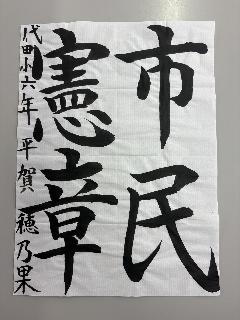 市民
憲章
代田小六年 平賀穂乃果